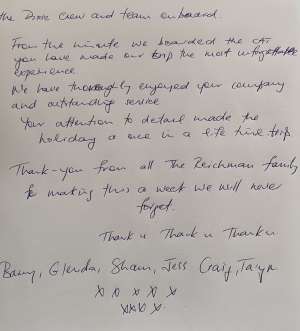 the Dixie crew and team onboard.
From the minute we boarded the CAT
you have made our trip the most unforgettable
experience
We have thoroughly enjoyed your company
and outstanding service
Your attention to detail made the
holiday a once in a life time trip
Thank-you from all The Zeichman family
for making this a week we will never
forget.
Thank u Thank u Thank u
Barry, Glenda, Shaun, Jess Craig, Taryn
x x x x x
xxx x